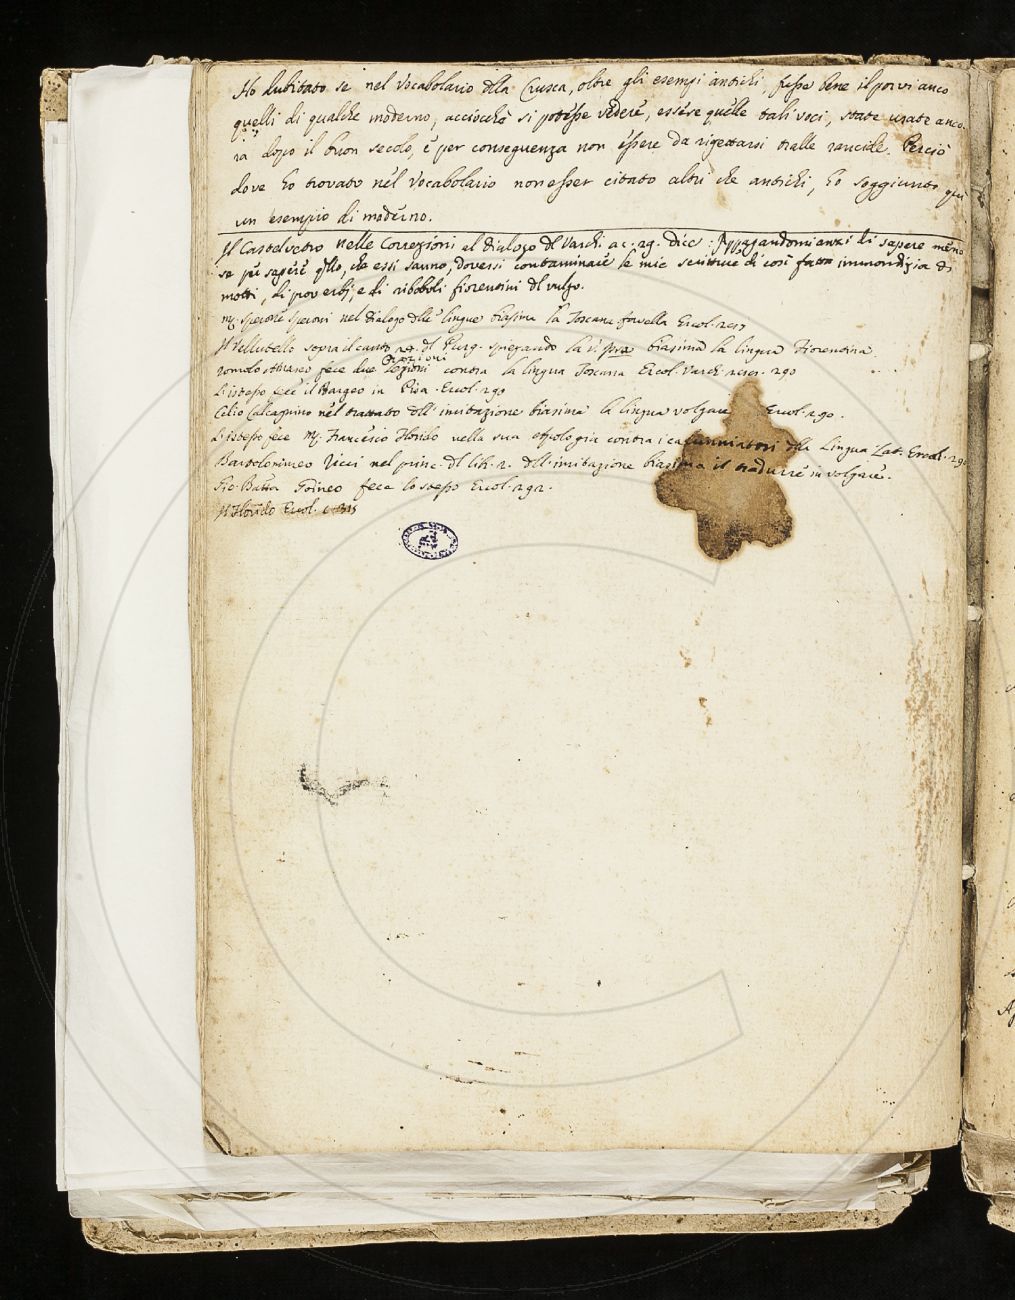 Ho dubitato se nel Vocabolario dlla Crusca, oltre gli esempi antichi, fusse bene il porvi anco
quelli di qualche moderno, acciocchè si potesse vedere, essere quelle tali voci, state usate anco-
ra dopo il buon secolo, e per conseguenza non essere da rigettarsi tralle rancide. Perciò
dove ho trovato nel Vocabolario non esser citato altri che antichi, ho soggiunto qui
un esempio di moderno.
Il Castelvetro nelle Correzioni al dialogo dl Varchi a c. 29. dice: Appagandomi anzi di sapere meno
se più sapere qllo, che essi sanno, dovessi contaminare le mie scritture di così fatta immondizia di
motti, di proverbj, e di riboboli fiorentini dl vulgo.
m. Sperone Speroni nel dialogo dlle lingue biasima la Toscana favella Ercol.
Il Vellutello sopra il canto dl Purg. spiegando la v. biasima la lingua Fiorentina.
Orazioni
romolo fece due contra la lingua Toscana Ercol. Varch. 290
L'istesso fece il Bargeo in Pisa. Ercol. 290
Celio Calcagnino nel trattato dll'imitazione biasima la lingua volgare Ercol. 290.
L'istesso fece m. Francesco Florido nella sua apologia contra i calunniatori dlla Lingua Lat. Ercol. 290
Bartolommeo Ricci nel princ. dl lib. 2. dll'imitazione biasima il tradurre in volgare.
Gio. Batta Goineo fece lo stesso Ercol. 292.
Il Florido Ercol.